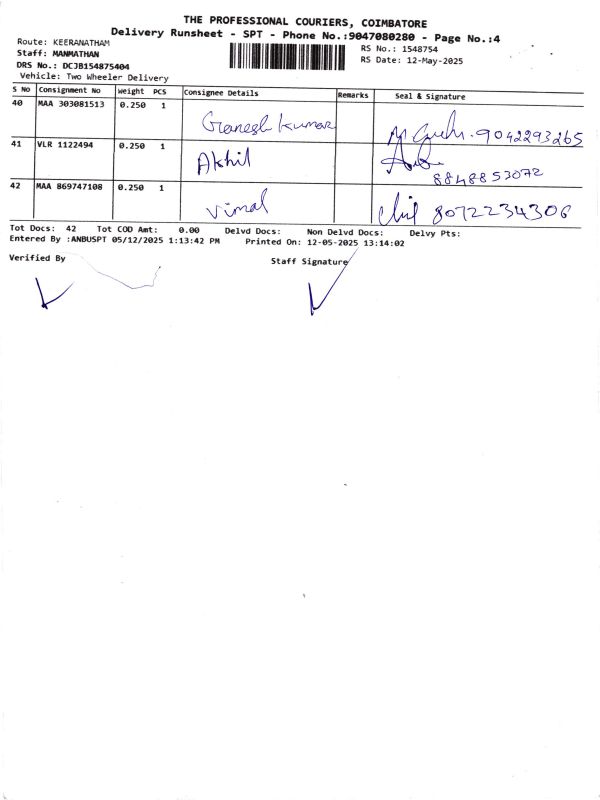 THE PROFESSIONAL COURIERS, COIMBATORE
Delivery Runsheet - SPT - Phone No.:9047080280 - Page No.:4
Route: KEERANATHAM
RS No.: 1548754
Staff: MANMATHAN
RS Date: 12-May-2025
DRS No.: DCJB154875404
Vehicle: Two Wheeler Delivery
S No Consignment No Weight PCS Consignee Details Remarks Seal & Signature
40 MAA 303081513 0.250 1 Ganesh Kumar 9042293265
41 VLR 1122494 0.250 1 Akhil 8848853072
42 MAA 869747108 0.250 1 Vimal 8072234306
Tot Docs: 42 Tot COD Amt: 0.00 Delvd Docs: Non Delvd Docs: Delvy Pts:
Entered By :ANBUSPT 05/12/2025 1:13:42 PM Printed On: 12-05-2025 13:14:02
Verified By Staff Signature